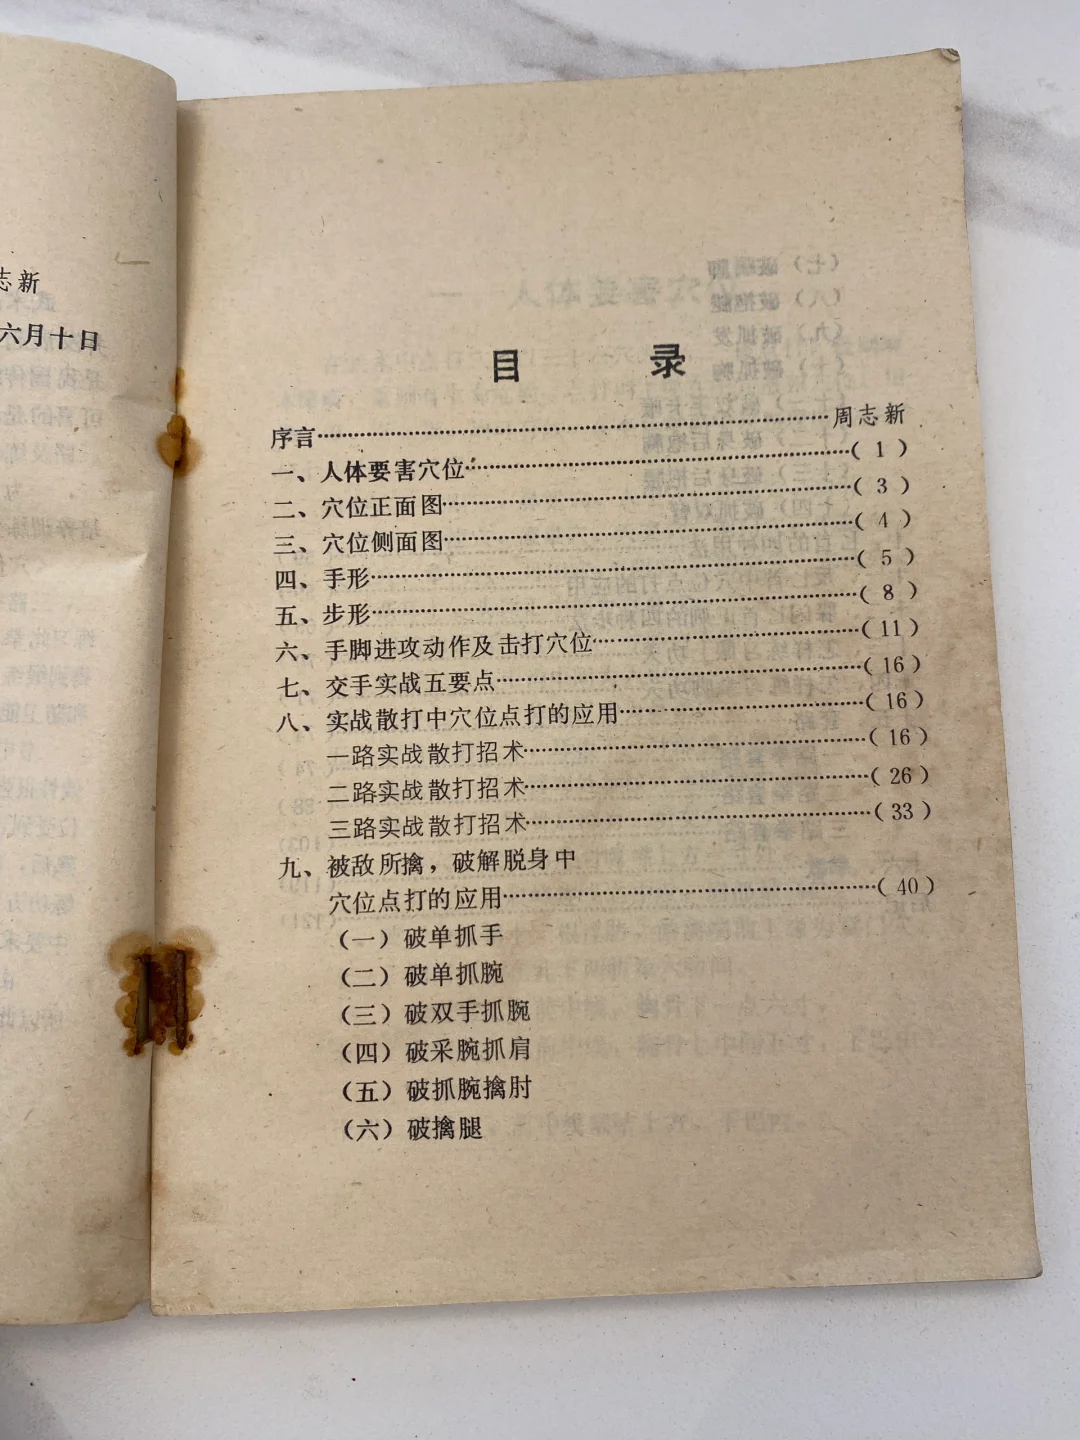 志新
六月十日
目 录
序言……………………………………周志新
一、人体要害穴位……………………………( 1 )
二、穴位正面图………………………………( 3 )
三、穴位侧面图………………………………( 4 )
四、手形………………………………………( 5 )
五、步形………………………………………( 8 )
六、手脚进攻动作及击打穴位………………( 11 )
七、交手实战五要点…………………………( 16 )
八、实战散打中穴位点打的应用……………( 16 )
一路实战散打招术……………………………( 16 )
二路实战散打招术……………………………( 26 )
三路实战散打招术……………………………( 33 )
九、被敌所擒，破解脱身中
穴位点打的应用………………………………( 40 )
（一）破单抓手
（二）破单抓腕
（三）破双手抓腕
（四）破采腕抓肩
（五）破抓腕擒肘
（六）破擒腿